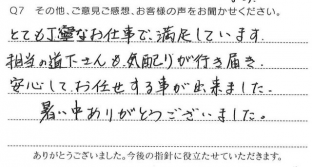 Q7 その他、ご意見ご感想、お客様の声をお聞かせください。
とても丁寧なお仕事で、満足しています。
担当の道下さんも気配りが行き届き、
安心してお任せする事が出来ました。
暑い中ありがとうございました。
ありがとうございました。今後の指針に役立たせていただきます。